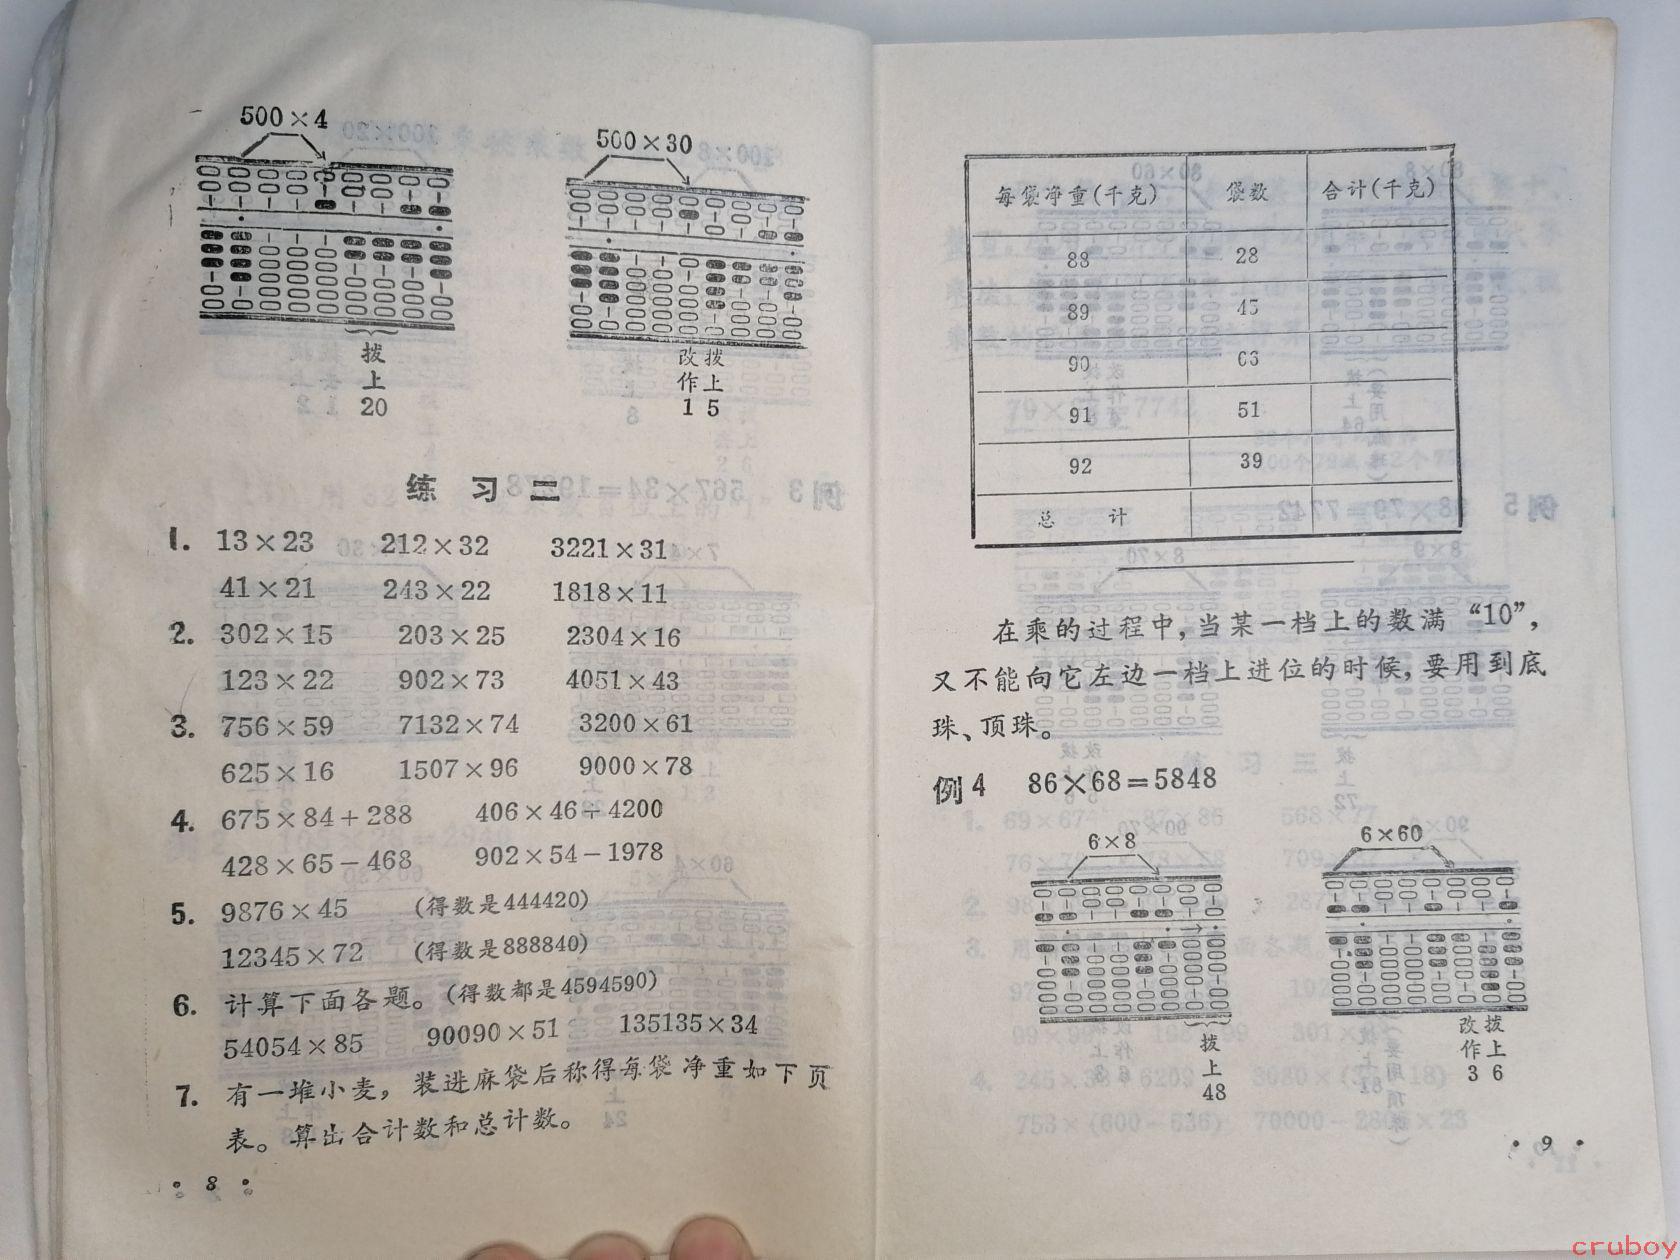 500×4
500×30
拨上20
改作1
拨上5
练习二
1. 13×23 212×32 3221×31
41×21 243×22 1818×11
2. 302×15 203×25 2304×16
123×22 902×73 4051×43
3. 756×59 7132×74 3200×61
625×16 1507×96 9000×78
4. 675×84+288 406×46+4200
428×65-468 902×54-1978
5. 9876×45 (得数是444420)
12345×72 (得数是888840)
6. 计算下面各题。(得数都是4594590)
54054×85 90090×51 135135×34
7. 有一堆小麦，装进麻袋后称得每袋净重如下页
表。算出合计数和总计数。
• 8 •
每袋净重(千克) 袋数 合计(千克)
88 28
89 45
90 63
91 51
92 39
总计
在乘的过程中，当某一档上的数满“10”，
又不能向它左边一档上进位的时候，要用到底
珠、顶珠。
例4 86×68=5848
6×8
6×60
拨上48
改作3
拨上6
• 9 •
cruboy